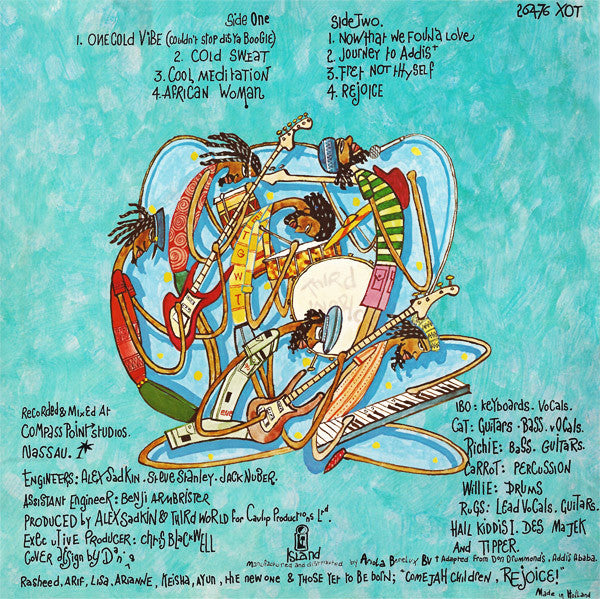 26476 XOT
Side One
1. ONE COLD VIBE (couldn't stop dis ya BOOGIE)
2. COLD SWEAT
3. COOL MEDITATION
4. AFRICAN WOMAN
Side Two.
1. NOW that WE FOUND A LOVE
2. JOURNEY to ADDIS†
3. FRET NOT tHYSELF
4. REJOICE
GWT
THIRD
WORLD
RECORDED & MIXED At
COMPASS POINT STUDIOS.
NASSAU.
ENGINEERS: ALEX SADKIN. Steve Stanley. JACK NUBER.
ASSISTANT ENGINEER: BENJI ARMBRISTER
PRODUCED by ALEX SADKIN & THIRD WORLD for Caulip Productions Ltd.
EXECUTIVE PRODUCER: CHRIS BLACKWELL
COVER design by
IBO: KEYBOARDS. VOCALS.
CAT: GUITARS. BASS. VOCALS.
RICHIE: BASS. GUITARS.
CARROT: PERCUSSION
WILLIE: DRUMS
RUGS: LEAD VOCALS. GUITARS.
HALL KIDDIS I. DES MAJEK
AND TIPPER.
Island
Manufactured and distributed by Ariola Benelux BV † Adapted from Don Drummond's, Addis Ababa.
Rasheed, ARIF, LISA, ARIANNE, KEISHA, AYUN, the new one & THOSE YET to BE BORN; "COME JAH CHILDREN, REJOICE!"
Made in Holland